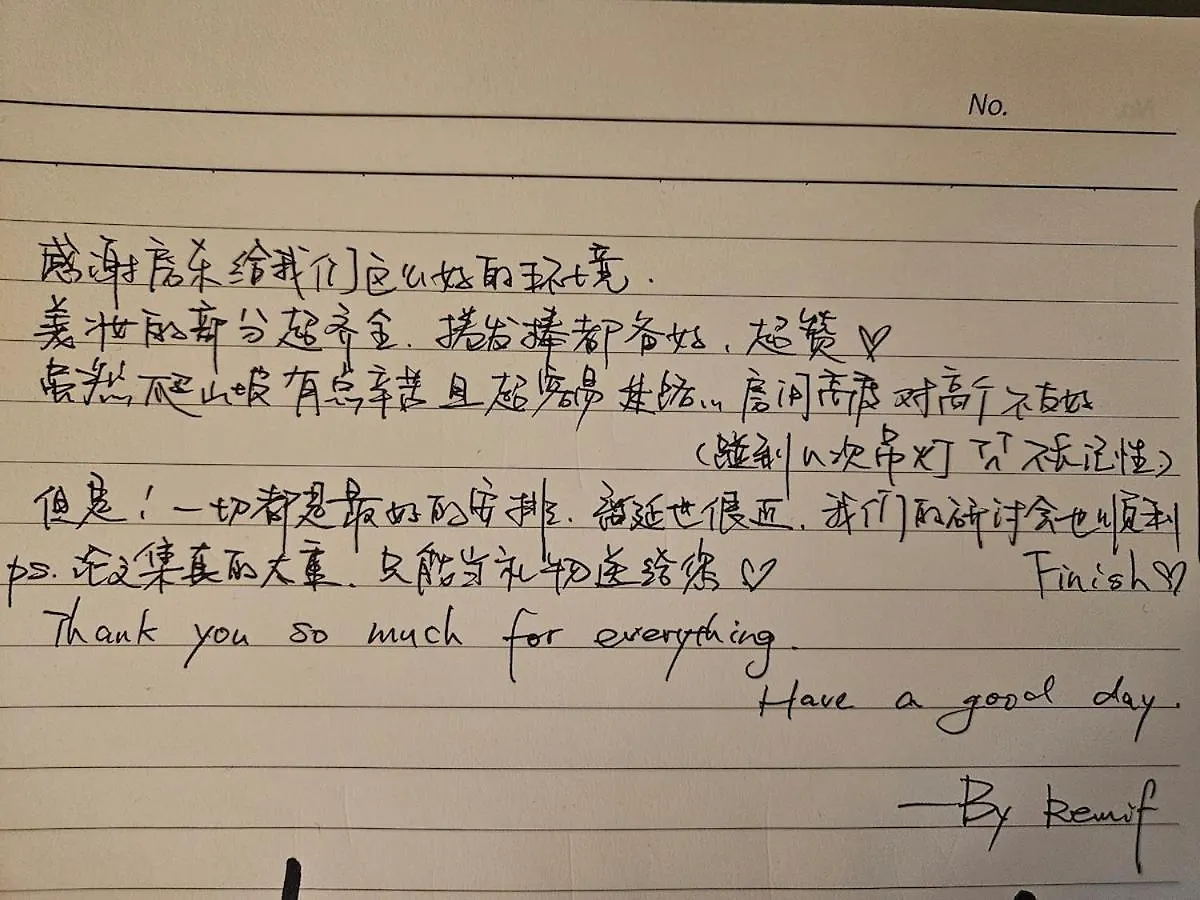 No.
感谢房东给我们这么好的环境.
美妆的部分超齐全.捲发棒都备好.超赞♡
虽然爬山坡有点辛苦且超容易迷路… 房间高度对高个不友好
(碰到n次吊灯 TT 不长记性)
但是!一切都是最好的安排.离延世很近.我们的研讨会也顺利
ps.论文集真的太重.只能当礼物送给您♡ Finish♡
Thank you so much for everything.
Have a good day.
—By